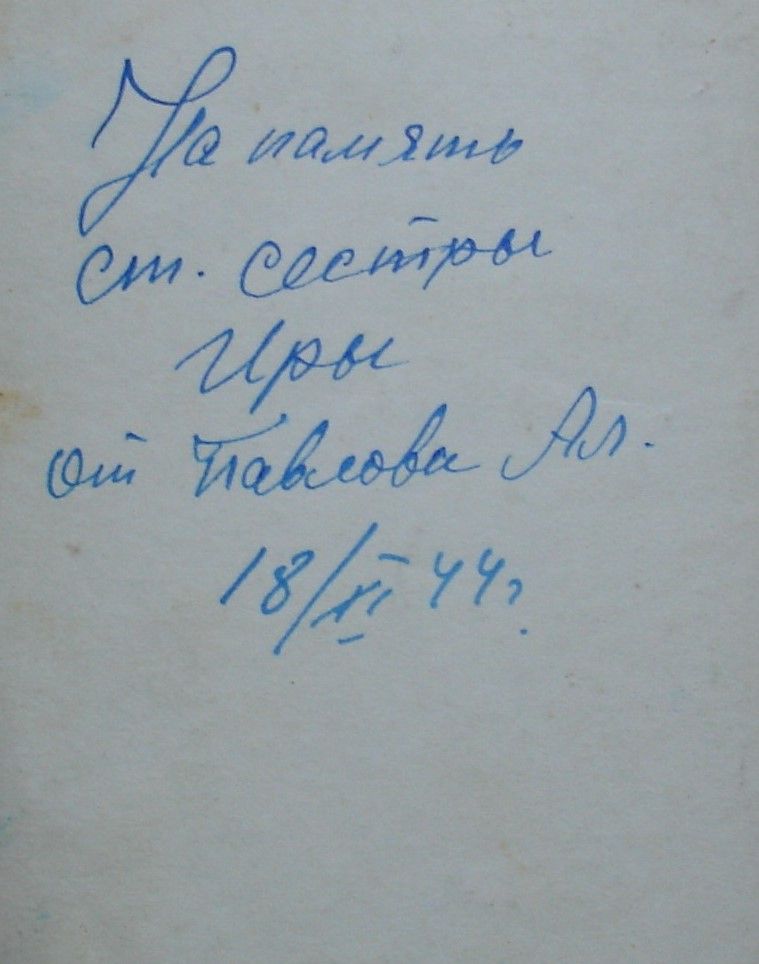 На память
ст. сестры
Иры
от Павлова Ал.
18/XI 44г.